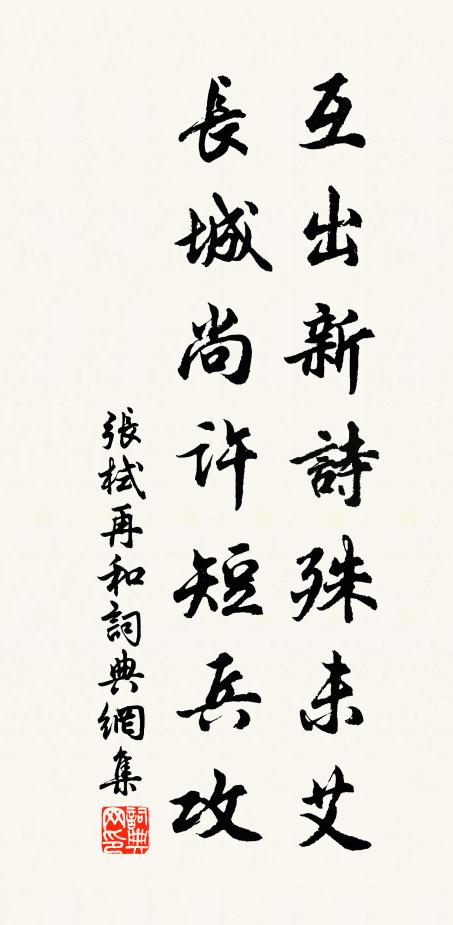 互出新詩殊未艾
長城尚许短兵攻
張栻再和詞典網集
詞典网印